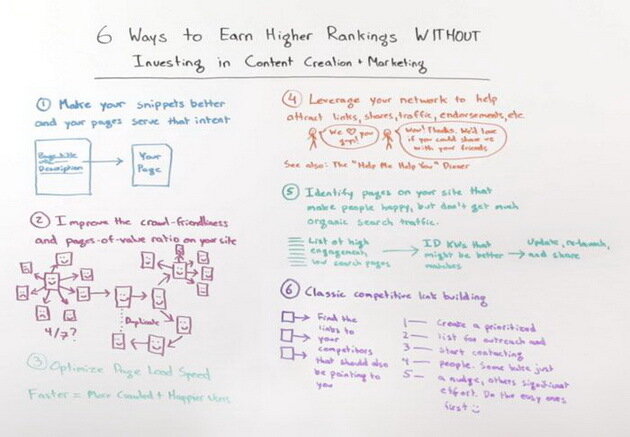 6 Ways to Earn Higher Rankings WITHOUT
Investing in Content Creation + Marketing
1 Make your snippets better
and your pages serve that intent
Page title
Description
Your
Page
2 Improve the crawl-friendliness
and pages-of-value ratio on your site
Duplicate
4/7?
3 Optimize Page Load Speed
Faster = More Crawled + Happier Users
4 Leverage your network to help
attract links, shares, traffic, endorsements, etc.
We ♡ you
guys!
Wow! Thanks. We'd love
if you could share us
with your friends
See also: The "Help Me Help You" Dinner
5 Identify pages on your site that
make people happy, but don't get much
organic search traffic.
List of high
engagement,
low search pages
ID KWs that
might be better
matches
Update, re-launch,
and share
6 Classic competitive link building
Find the
links to
your
competitors
that should also
be pointing to
you
1 — Create a prioritized
2 — list for outreach and
3 — start contacting
4 — people. Some take just
5 — a nudge, others significant
effort. Do the easy ones
first